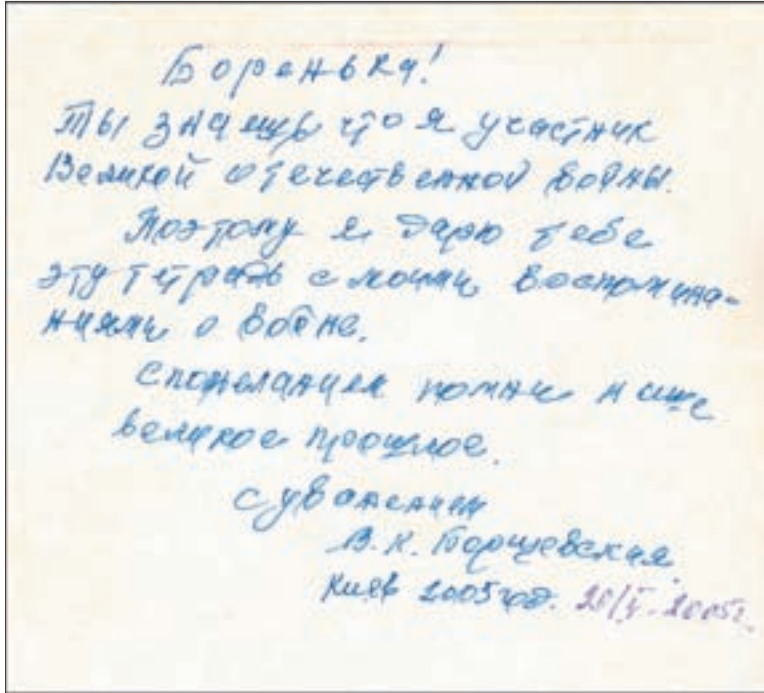 Боренька!
Ты знаешь что я участник
Великой отечественной войны.
Поэтому я дарю тебе
эту тетрадь с моими воспомина-
ниями о войне.
С пожеланием помни наше
великое прошлое.
С уважением
В.К. Борщевская.
Киев 2005 год. 28/V-2005г.